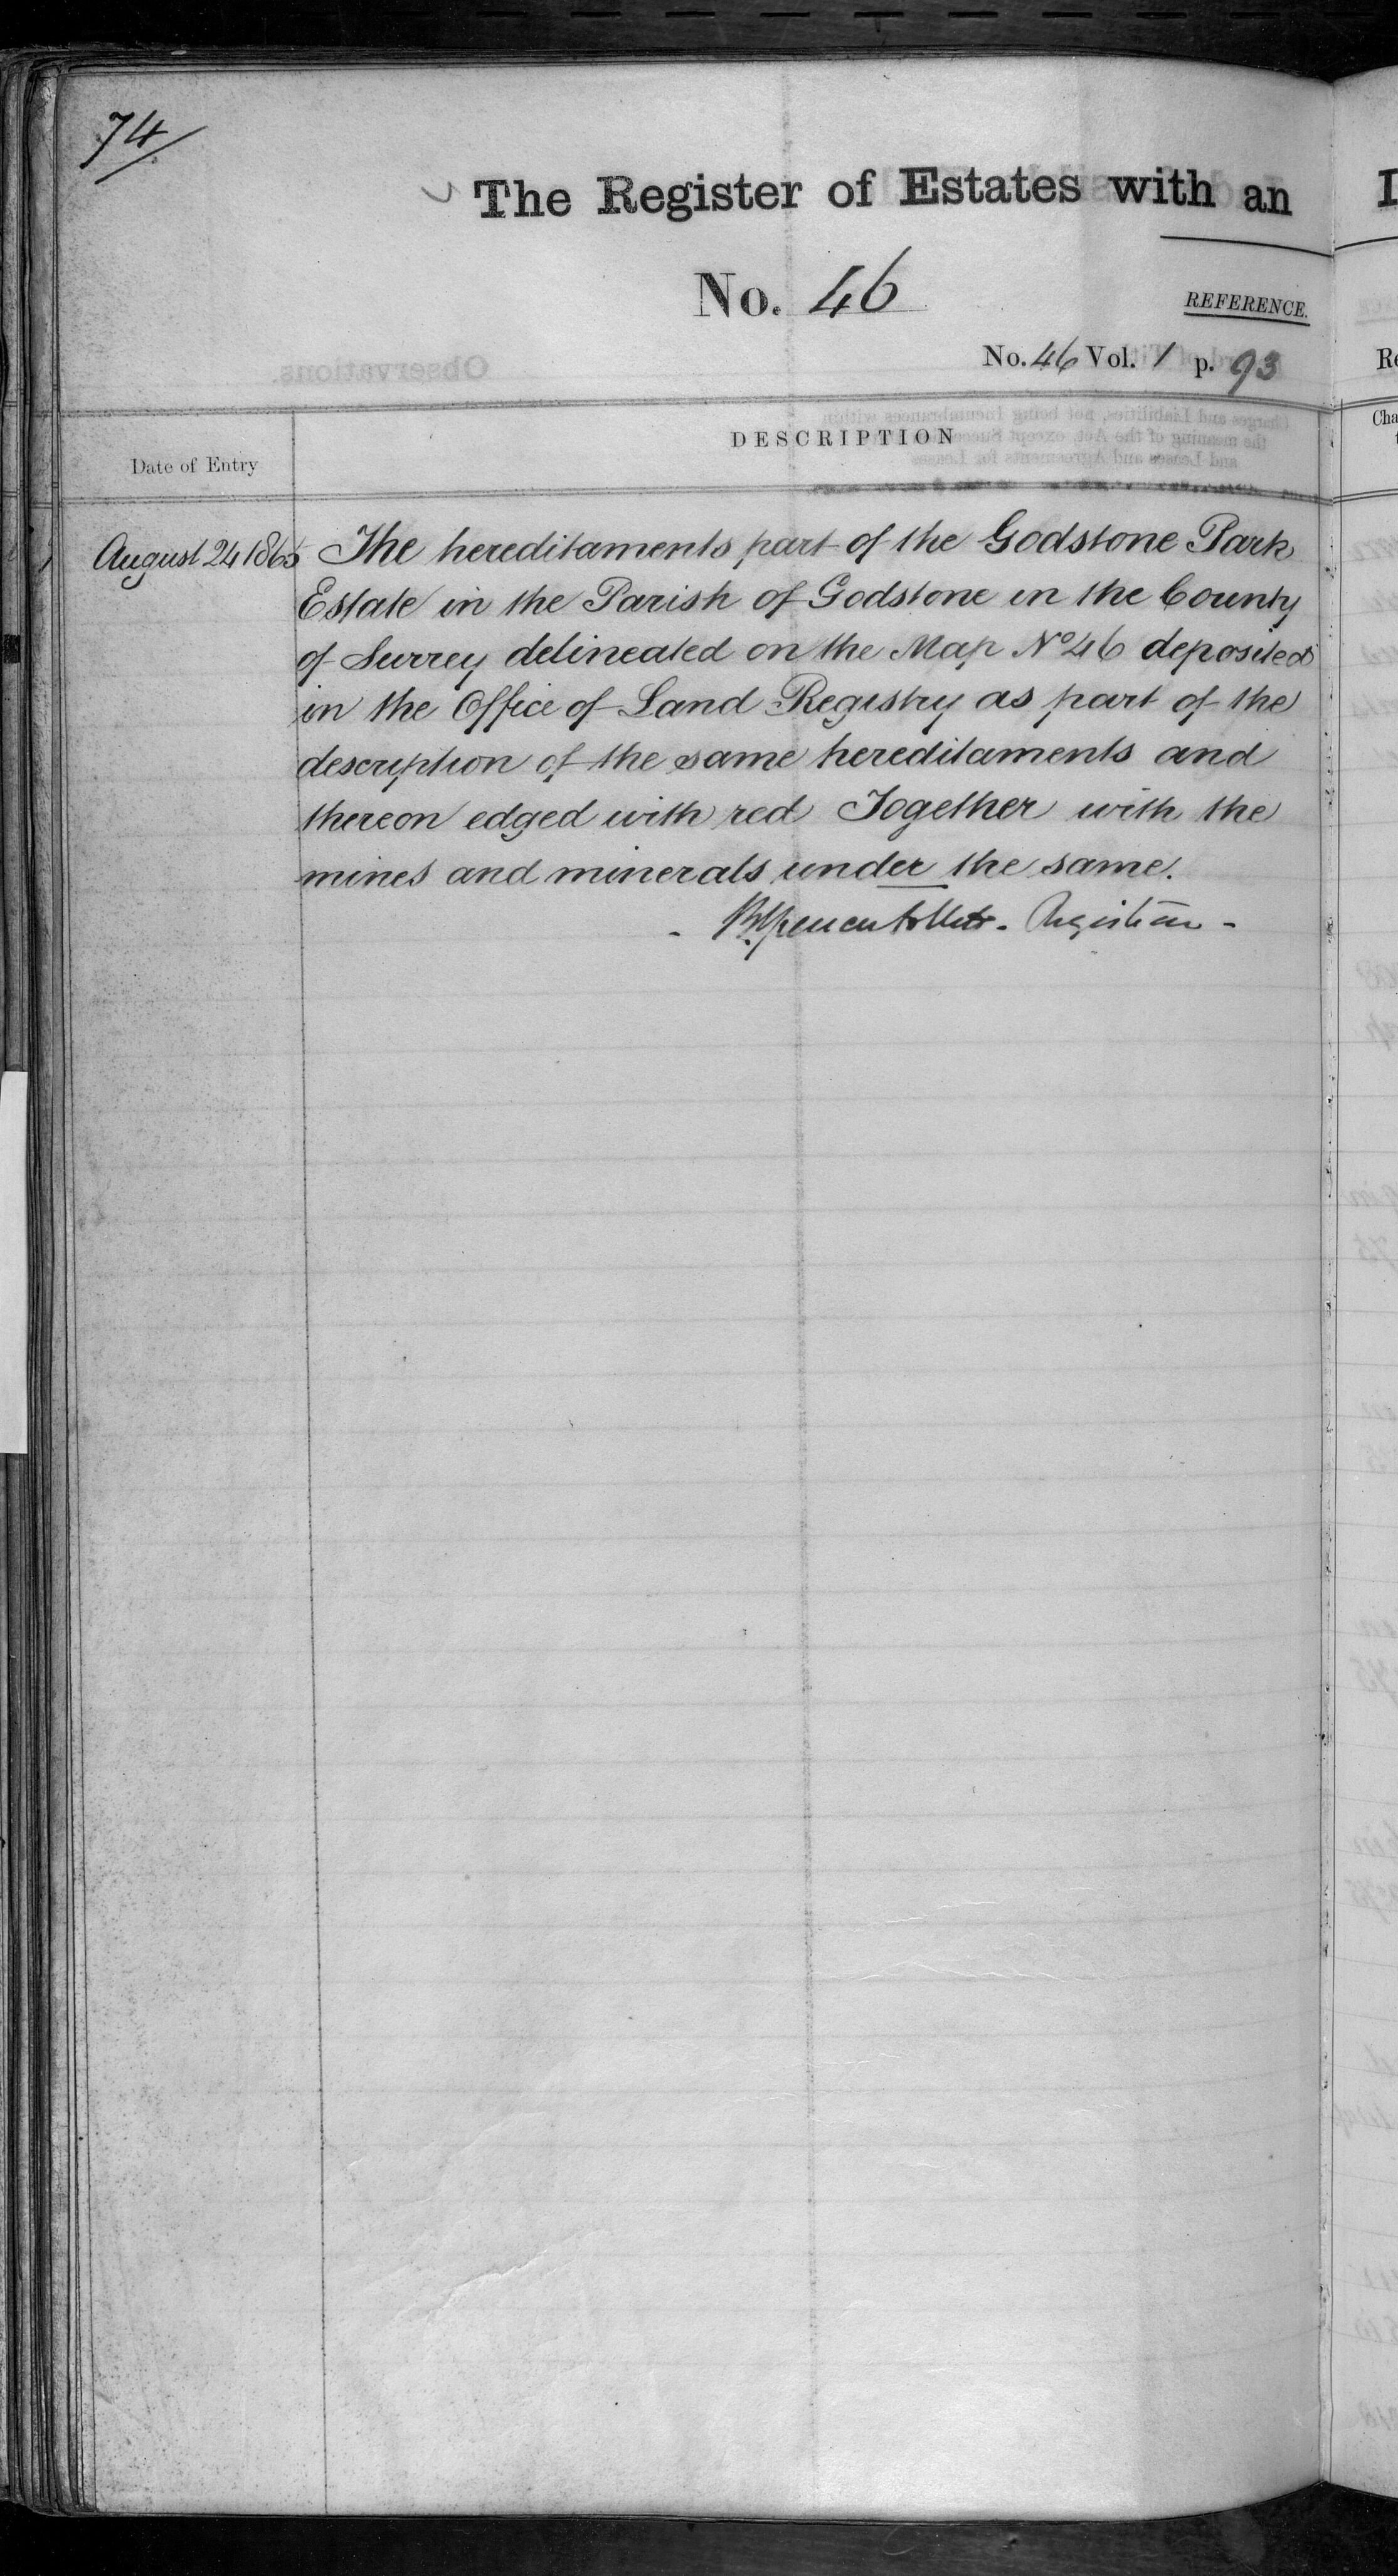 74/
The Register of Estates with an
No. 46
REFERENCE.
No. 46 Vol. 1 p. 93
DESCRIPTION
Date of Entry
August 24 1865 The hereditaments part of the Godstone Park
Estate in the Parish of Godstone in the County
of Surrey delineated on the Map No 46 deposited
in the Office of Land Registry as part of the
description of the same hereditaments and
thereon edged with red Together with the
mines and minerals under the same.
Registrar -